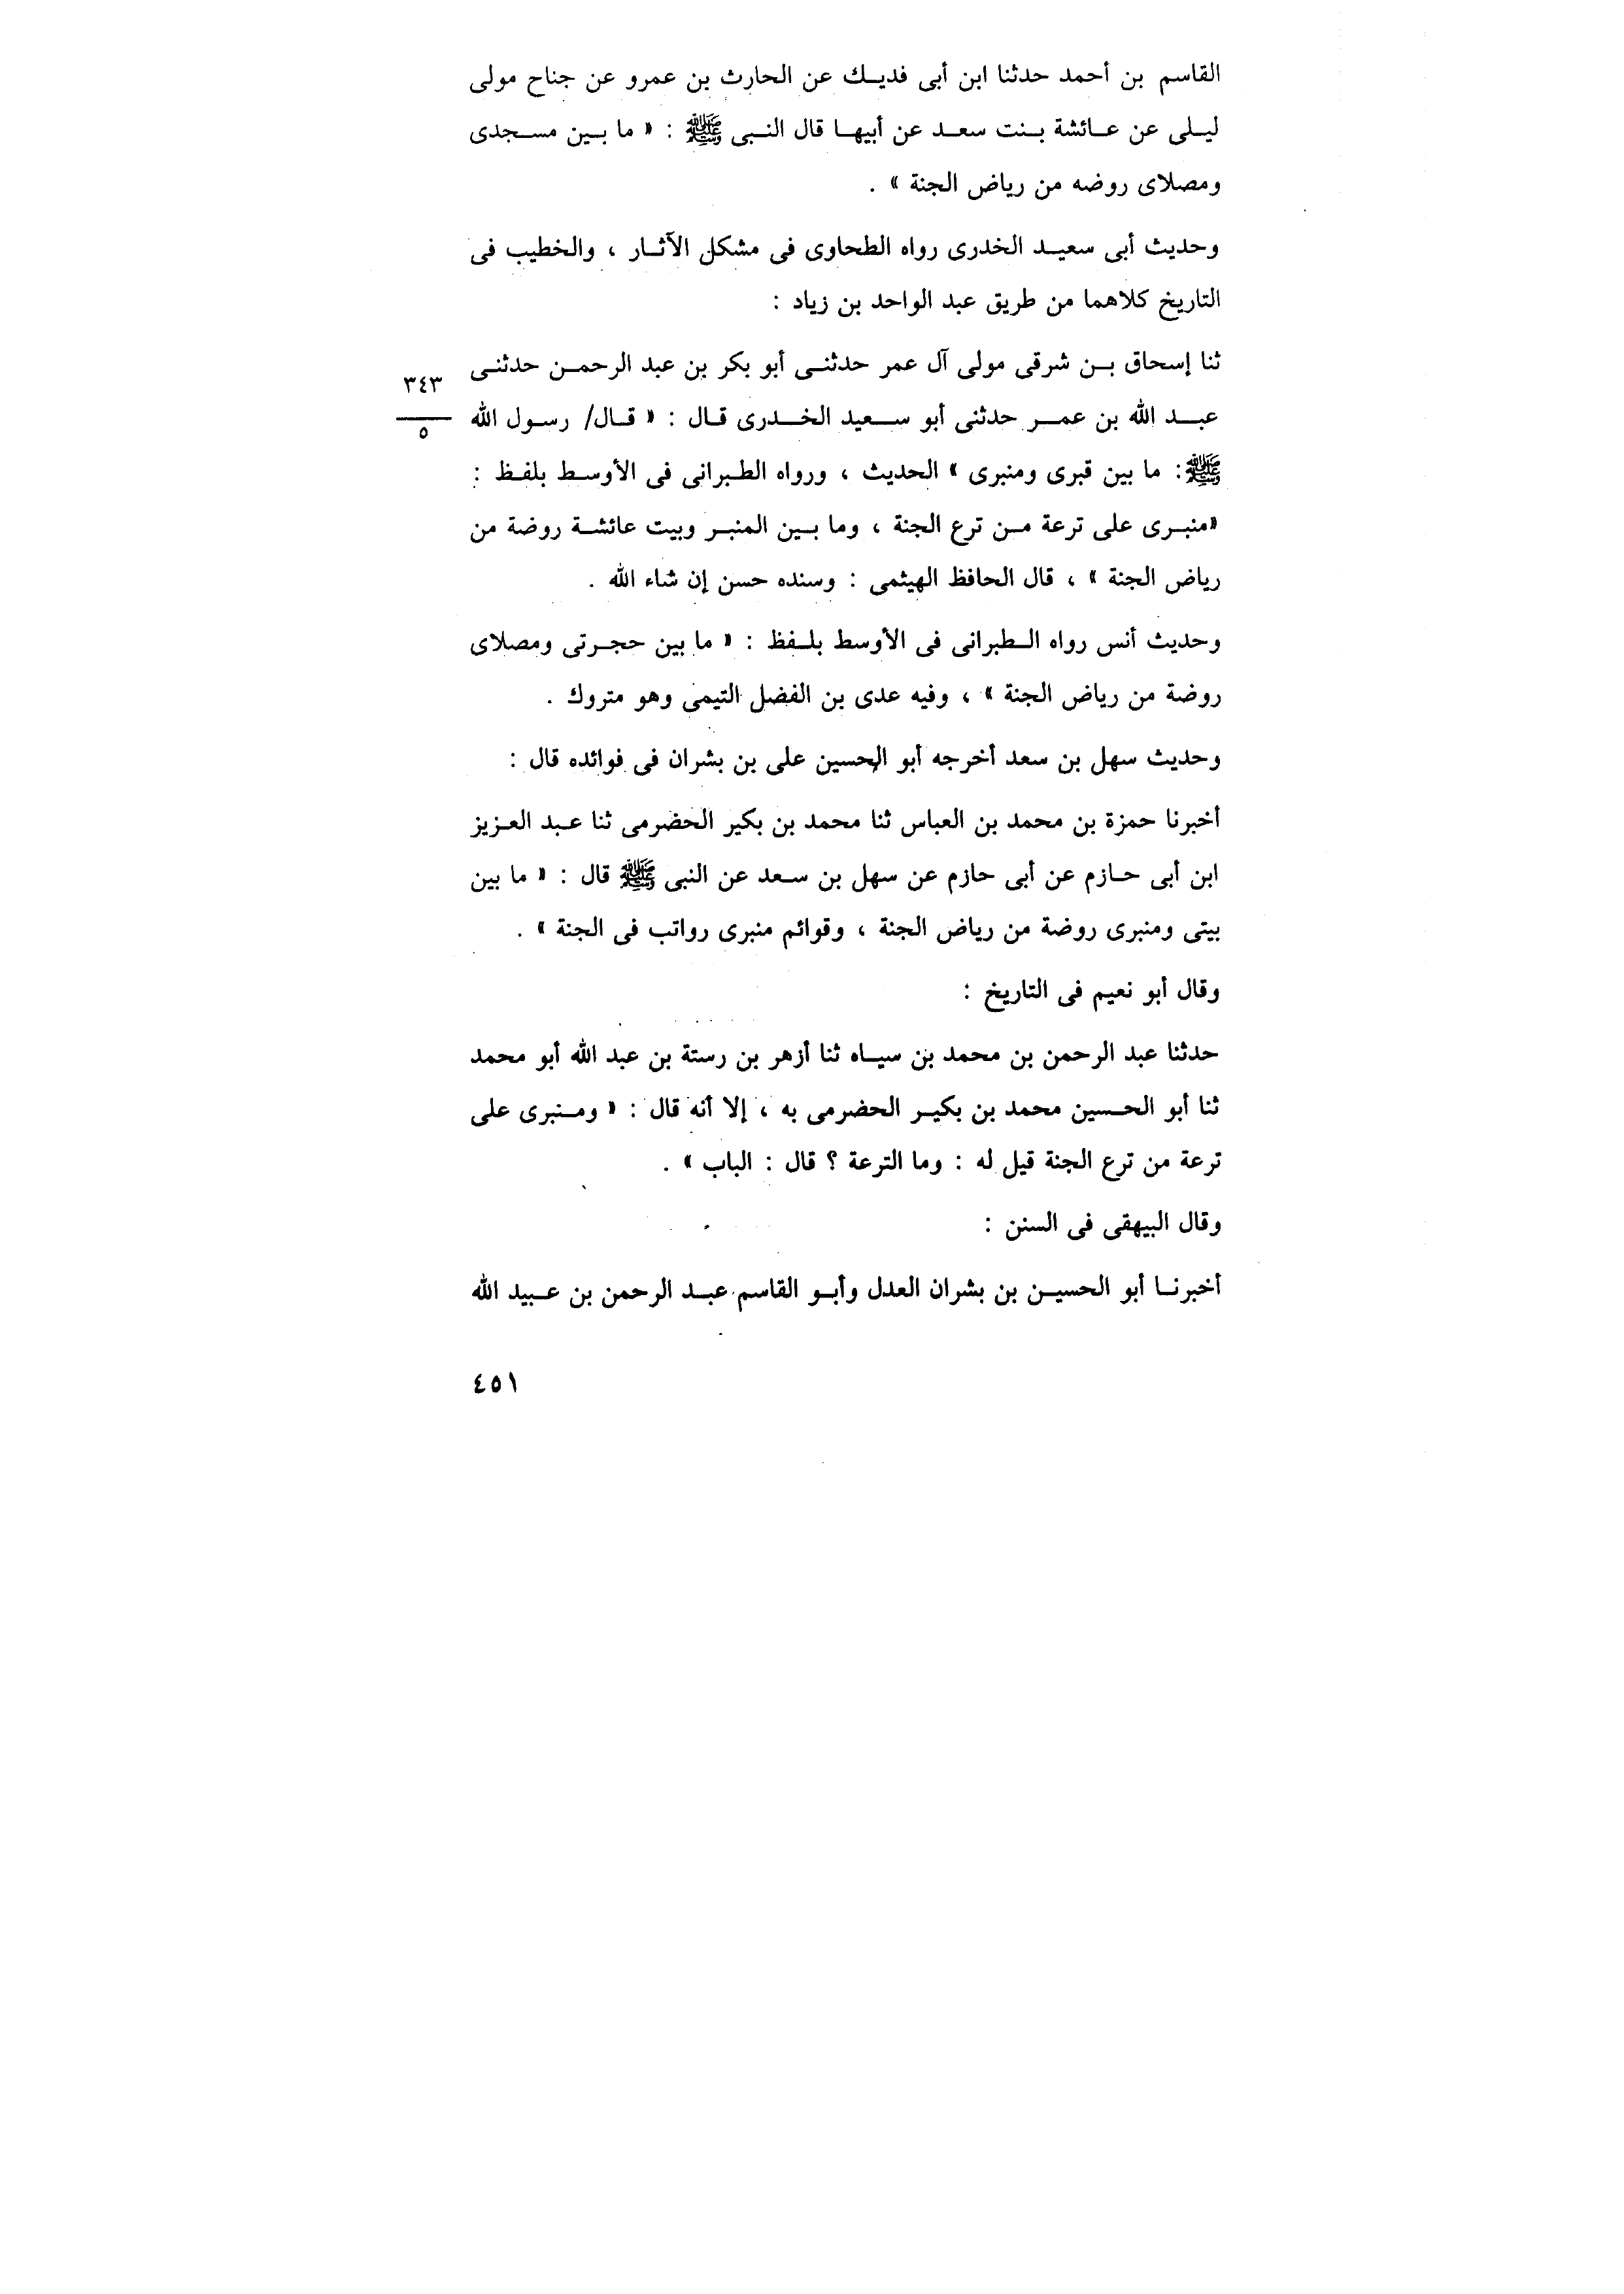 القاسم بن أحمد حدثنا ابن أبى فديك عن الحارث بن عمرو عن جناح مولى
ليلى عن عائشة بنت سعد عن أبيها قال النبى ﷺ : « ما بين مسجدى
ومصلاى روضه من رياض الجنة » .
وحديث أبى سعيد الخدرى رواه الطحاوى فى مشكل الآثار ، والخطيب فى
التاريخ كلاهما من طريق عبد الواحد بن زياد :
ثنا إسحاق بن شرقى مولى آل عمر حدثنى أبو بكر بن عبد الرحمن حدثنى
٣٤٣
عبد الله بن عمر حدثنى أبو سعيد الخدرى قال : « قال/ رسول الله
٥
ﷺ: ما بين قبرى ومنبرى » الحديث ، ورواه الطبرانى فى الأوسط بلفظ :
«منبرى على ترعة من ترع الجنة ، وما بين المنبر وبيت عائشة روضة من
رياض الجنة » ، قال الحافظ الهيثمى : وسنده حسن إن شاء الله .
وحديث أنس رواه الطبرانى فى الأوسط بلفظ : « ما بين حجرتى ومصلاى
روضة من رياض الجنة » ، وفيه عدى بن الفضل التيمى وهو متروك .
وحديث سهل بن سعد أخرجه أبو الحسين على بن بشران فى فوائده قال :
أخبرنا حمزة بن محمد بن العباس ثنا محمد بن بكير الحضرمى ثنا عبد العزيز
ابن أبى حازم عن أبى حازم عن سهل بن سعد عن النبى ﷺ قال : « ما بين
بيتى ومنبرى روضة من رياض الجنة ، وقوائم منبرى رواتب فى الجنة » .
وقال أبو نعيم فى التاريخ :
حدثنا عبد الرحمن بن محمد بن سياه ثنا أزهر بن رستة بن عبد الله أبو محمد
ثنا أبو الحسين محمد بن بكير الحضرمى به ، إلا أنه قال : « ومنبرى على
ترعة من ترع الجنة قيل له : وما الترعة ؟ قال : الباب » .
وقال البيهقى فى السنن :
أخبرنا أبو الحسين بن بشران العدل وأبو القاسم عبد الرحمن بن عبيد الله
٤٥١